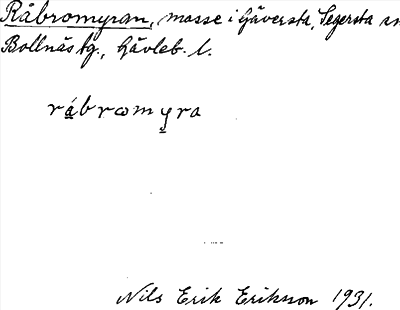 Råbromyran, mosse i Gäversta, Segersta sn
Bollnäs tg., Gävleb. l.
råbromyra
Nils Erik Eriksson 1931.